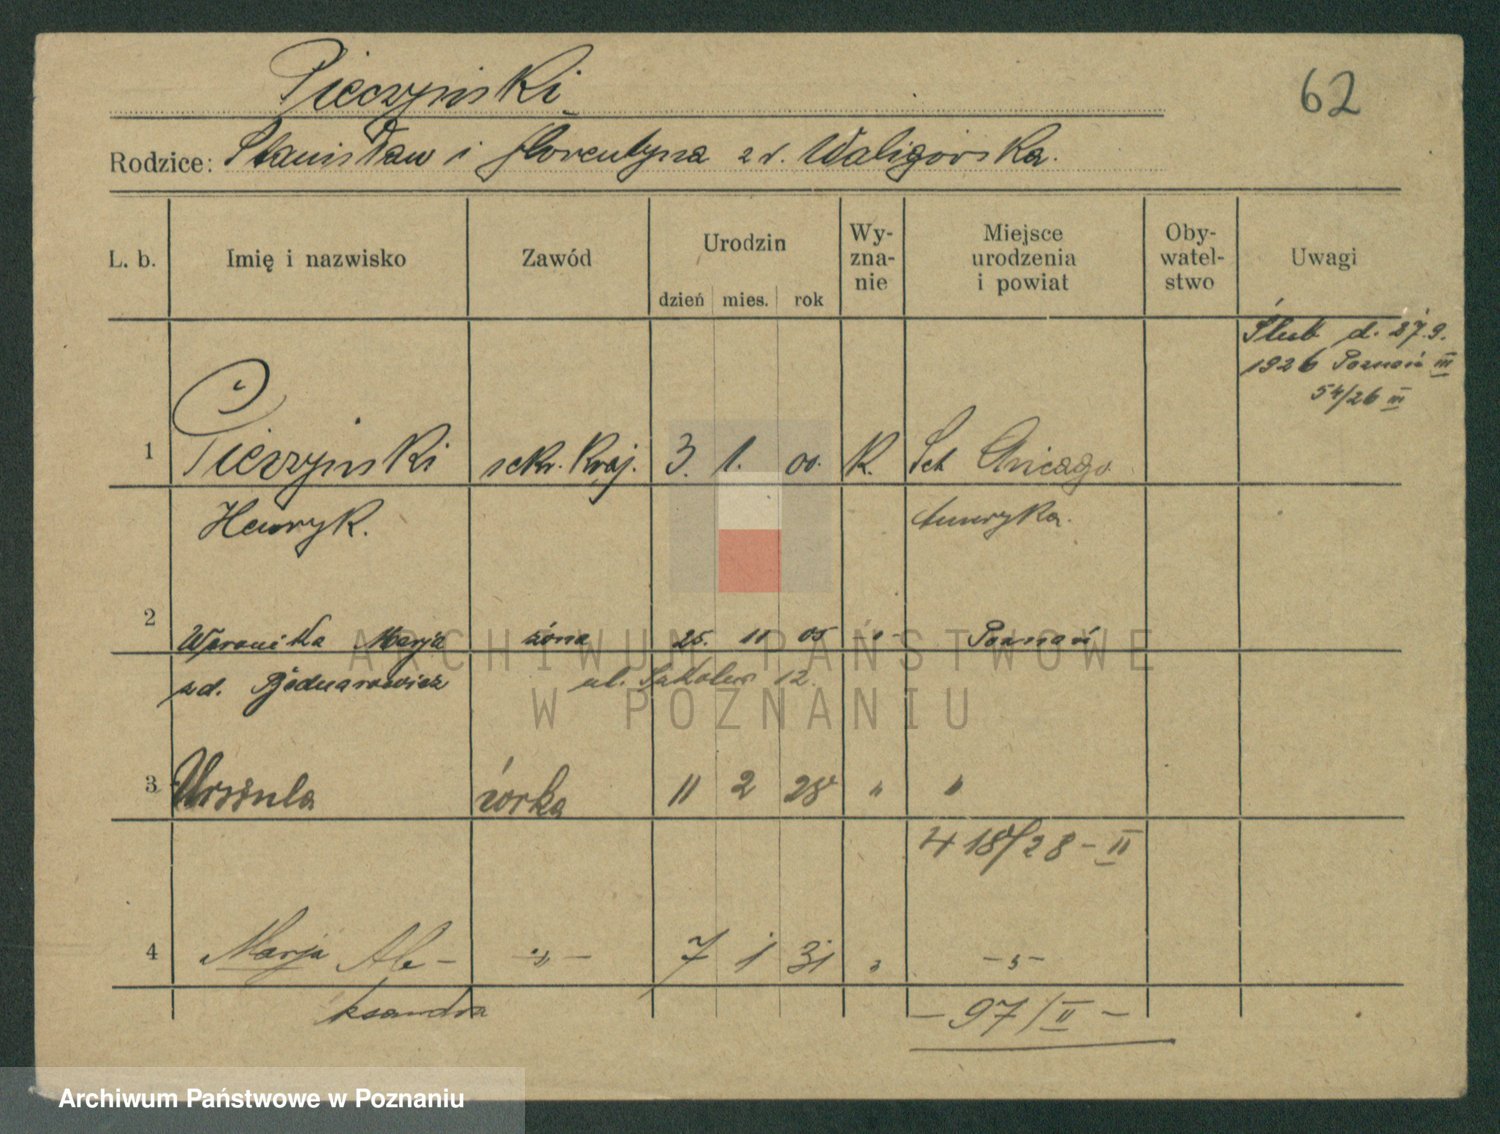 Pieczyński
62
Rodzice: Stanisław i Florentyna z d. Waligórska.
L. b. Imię i nazwisko Zawód Urodzin Wy-zna-nie Miejsce urodzenia i powiat Oby-watel-stwo Uwagi
dzień mies. rok
Ślub d. 27.9.
1926 Poznań III
54/26 III
1 Pieczyński sekr. Kraj. 3. 1. 00. K. Chicago
Henryk. Ameryka.
2 Weronika Marja żona 25. 11 05 Poznań
zd. Bednarowicz ul. 12.
3 Urszula córka 11 2 28 " "
418/28 - II
4 Marja Ale- -"- 7 1 31 " -"-
ksandra - 97/II -
ARCHIWUM PAŃSTWOWE
W POZNANIU
Archiwum Państwowe w Poznaniu